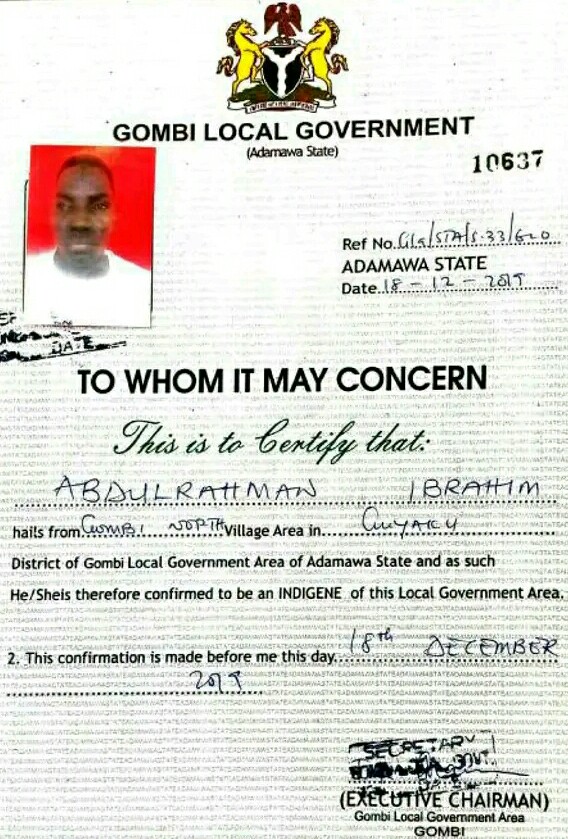 GOMBI LOCAL GOVERNMENT
(Adamawa State)
10637
Ref No. GLG/STA/S.33/620
ADAMAWA STATE
Date 18 - 12 - 2019
DATE
TO WHOM IT MAY CONCERN
This is to Certify that:
ABDULRAHMAN IBRAHIM
hails from GOMBI NORTH Village Area in GUYAKU
District of Gombi Local Government Area of Adamawa State and as such
He/Sheis therefore confirmed to be an INDIGENE of this Local Government Area.
2. This confirmation is made before me this day 18th DECEMBER
2019
SECRETARY
(EXECUTIVE CHAIRMAN)
Gombi Local Government Area
GOMBI